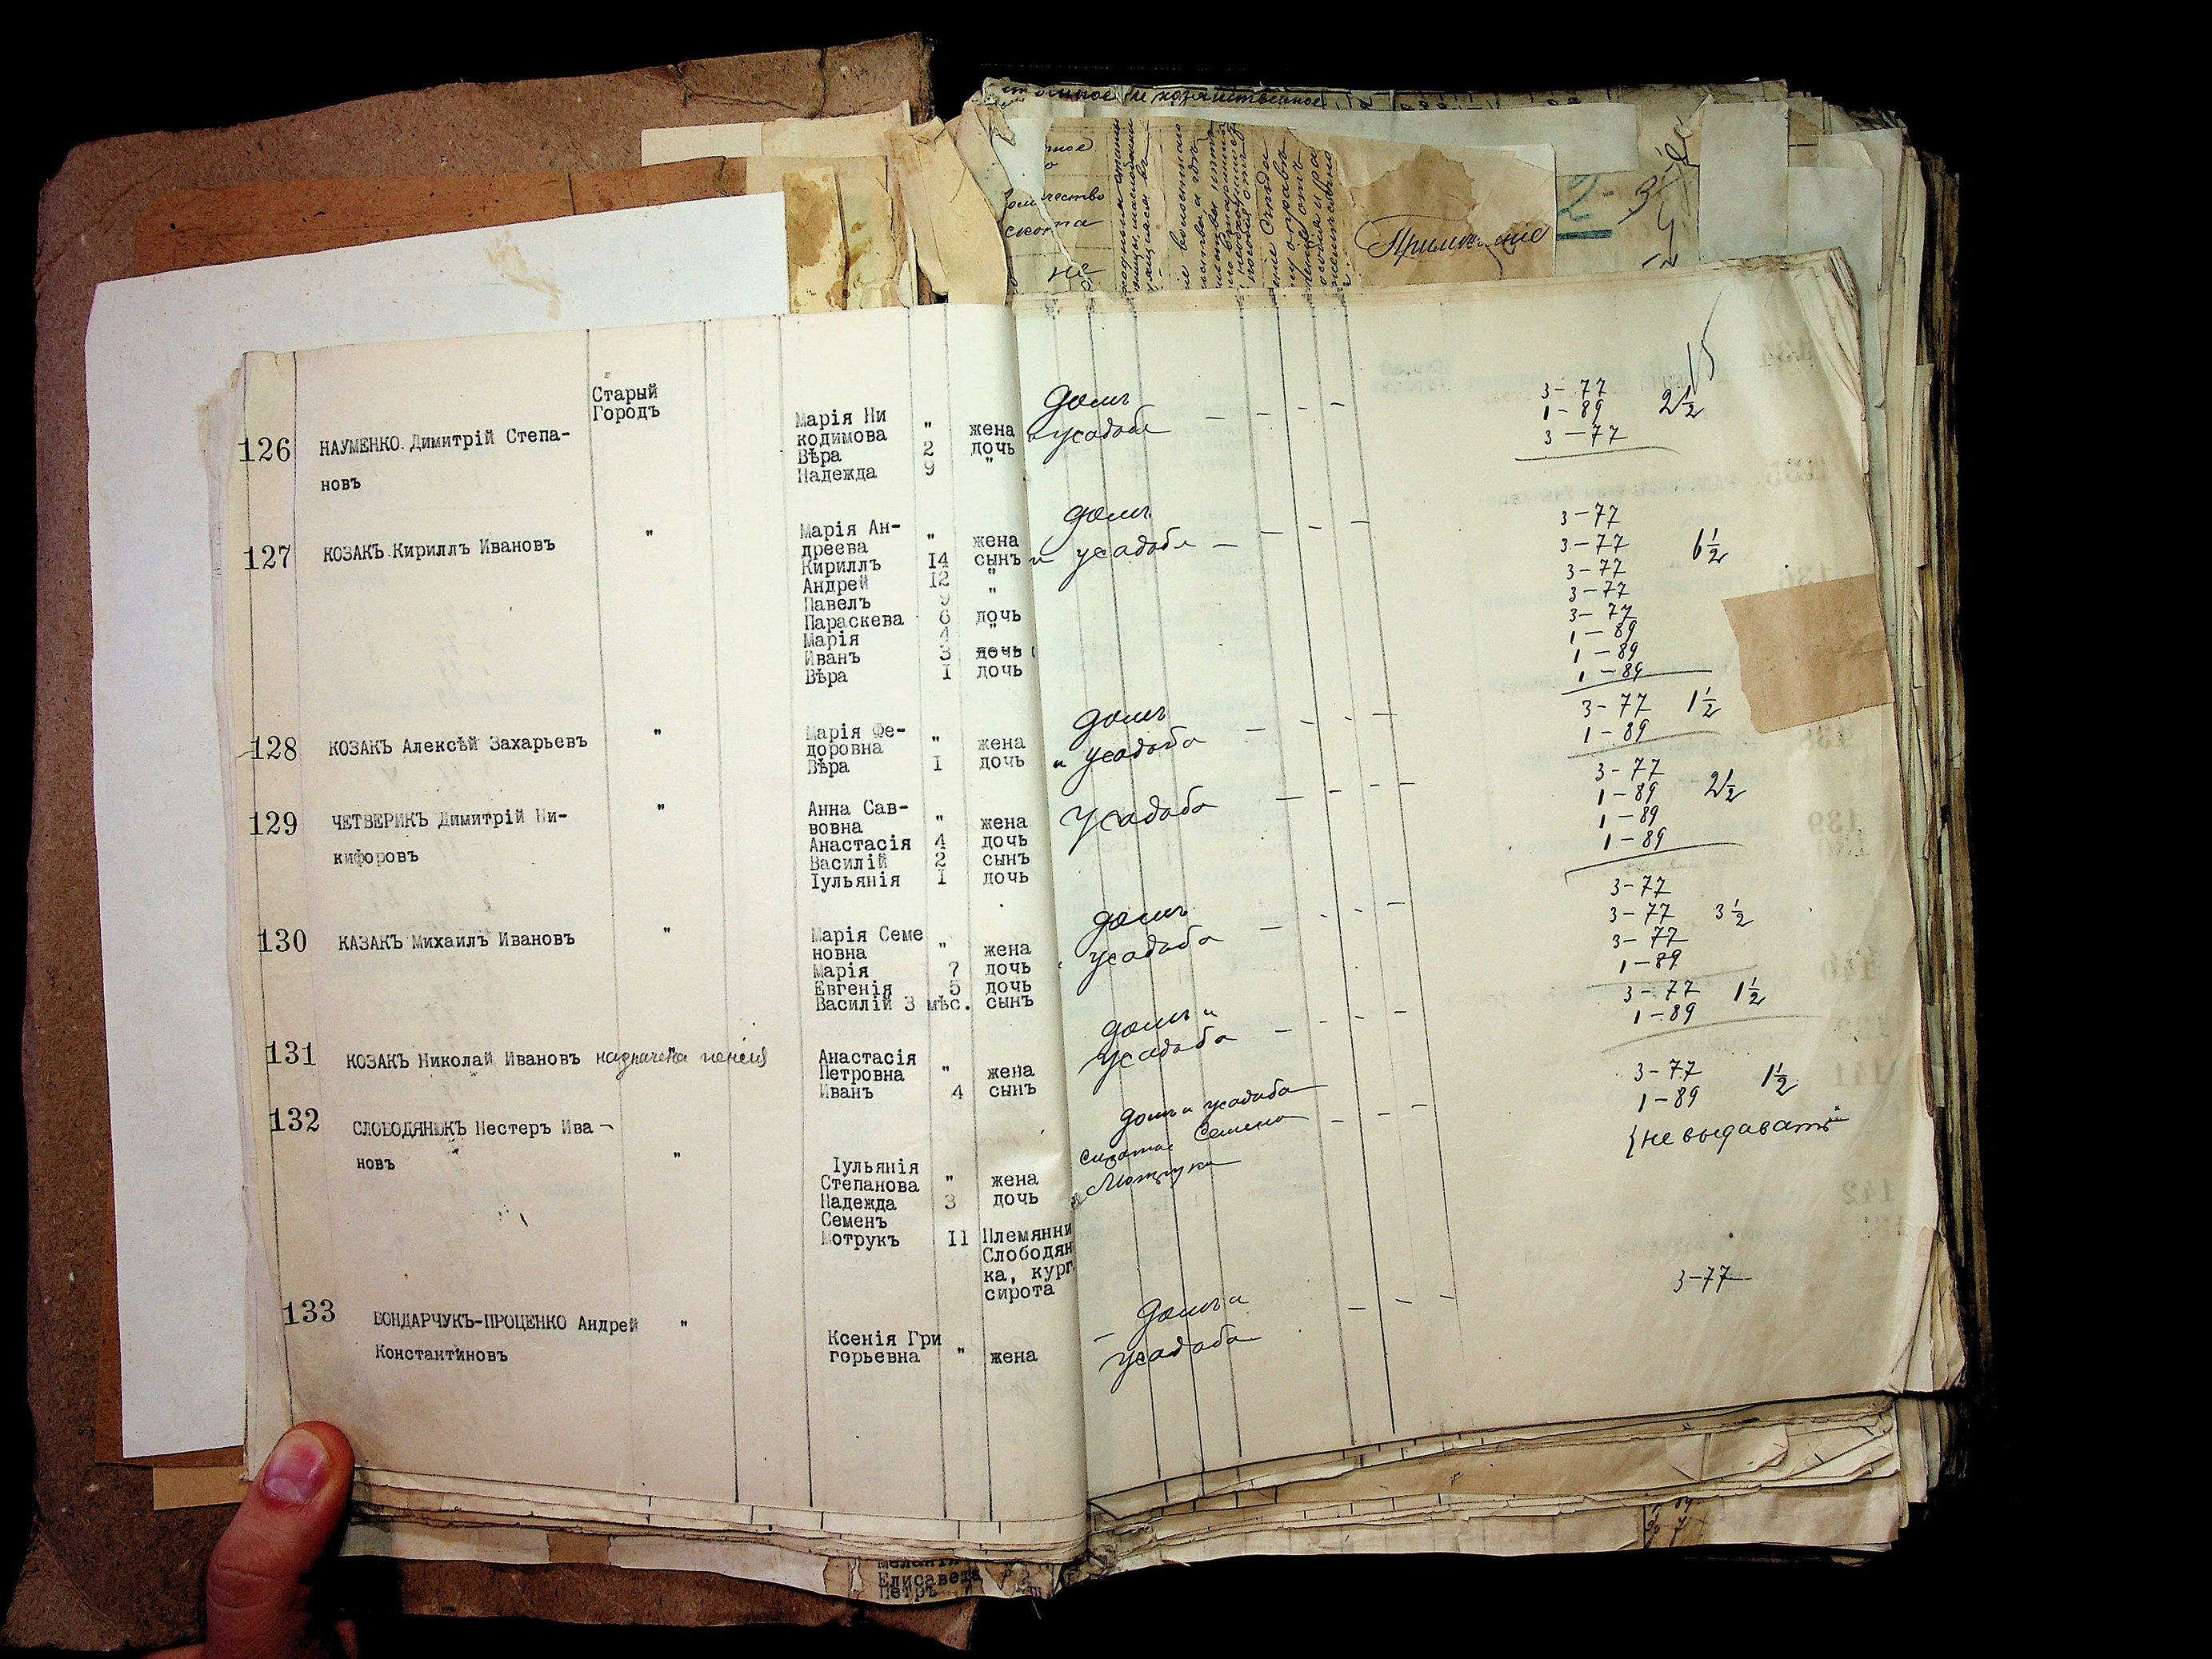 Старый
Городъ
126 НАУМЕНКО Димитрій Степа-
новъ
Марія Ни
кодимова " жена
Вѣра 2 дочь
Надежда 9 "
домъ
и усадьба - - - -
3-77
1-89 2½
3-77
15
127 КОЗАКЪ Кириллъ Ивановъ "
Марія Ан-
дреева " жена
Кириллъ 14 сынъ
Андрей 12 "
Павелъ 9 "
Параскева 6 дочь
Марія 4 "
Иванъ 3 дочь
Вѣра 1 дочь
домъ
и усадьба - - - -
3-77
3-77 6½
3-77
3-77
3-77
1-89
1-89
1-89
128 КОЗАКЪ Алексѣй Захарьевъ "
Марія Фе-
доровна " жена
Вѣра 1 дочь
домъ
и усадьба - - - -
3-77 1½
1-89
129 ЧЕТВЕРИКЪ Димитрій Ни-
кифоровъ "
Анна Сав-
вовна " жена
Анастасія 4 дочь
Василій 2 сынъ
Іульянія 1 дочь
Усадьба - - - -
3-77
1-89 2½
1-89
1-89
130 КАЗАКЪ Михаилъ Ивановъ "
Марія Семе
новна " жена
Марія 7 дочь
Евгенія 5 дочь
Василій 3 мѣс. сынъ
домъ
усадьба - - - -
3-77
3-77 3½
3-77
1-89
131 КОЗАКЪ Николай Ивановъ пенсія
Анастасія
Петровна " жена
Иванъ 4 сынъ
домъ и
усадьба - - - -
3-77 1½
1-89
132 СЛОБОДЯНЮКЪ Нестеръ Ива-
новъ "
Іульянія
Степанова " жена
Надежда 3 дочь
Семенъ
Мотрукъ 11 Племянни
Слободян
ка, кург.
сирота
домъ и усадьба
Семена
Мотрука
- - - -
3-77 1½
1-89
{не выдавать
133 БОНДАРЧУКЪ-ПРОЦЕНКО Андрей "
Константиновъ
Ксенія Гри
горьевна " жена
- домъ и
усадьба
- - -
3-77
хозяйственное
количество
скота
не
Примѣчаніе
Елисавета
Петръ